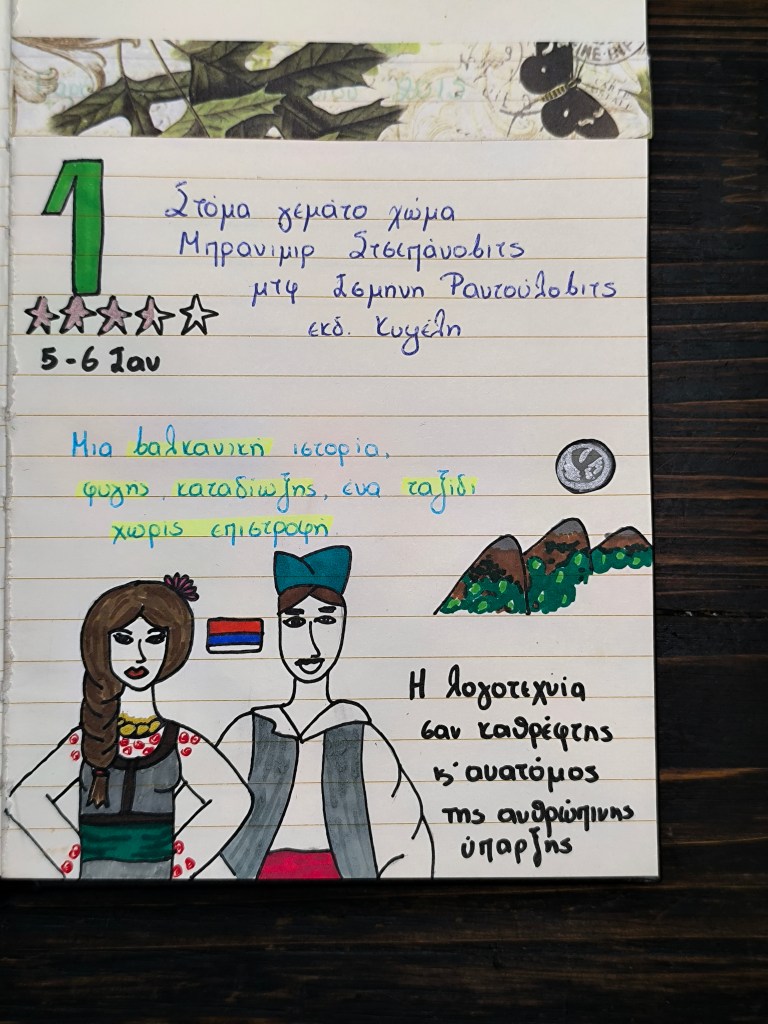 1
Στόμα γεμάτο χώμα
Μπρανιμιρ Στσεπάνοβιτς
μτφ Ισμηνη Ραντούλοβιτς
εκδ. Κυψέλη
5-6 Ιαν
Μια βαλκανική ιστορία,
φυγης, καταδίωξης, ένα ταξίδι
χωρίς επιστροφή
Η λογοτεχνία
σαν καθρέφτης
κ' ανατόμος
της ανθρώπινης
ύπαρξης